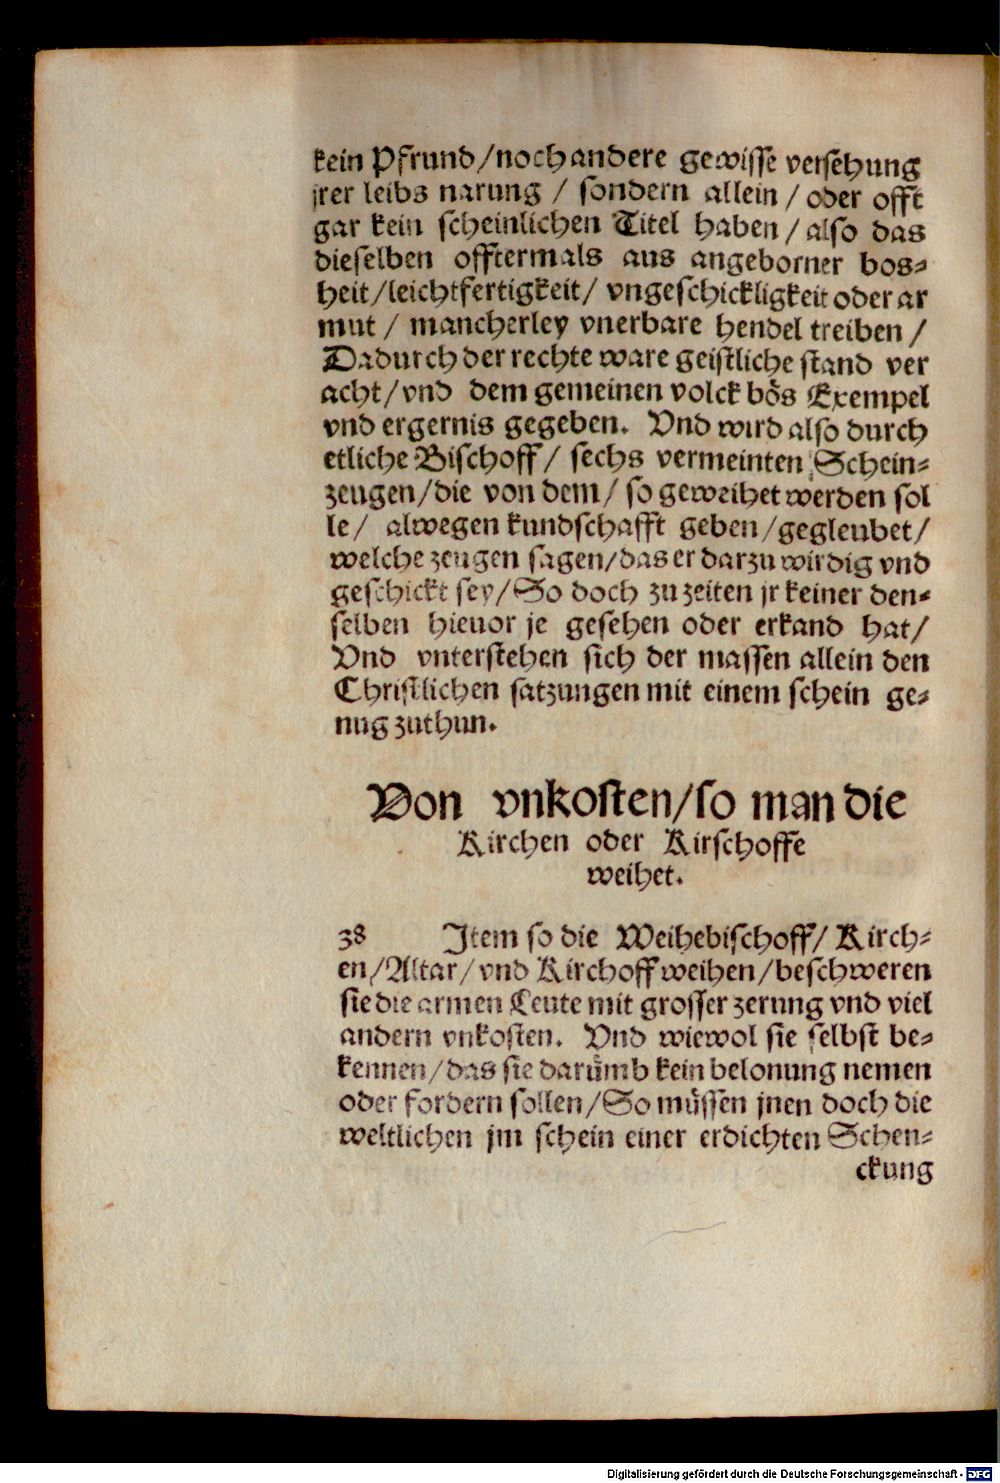 kein Pfrund/noch andere gewisse versehung
jrer leibs narung / sondern allein / oder offt
gar kein scheinlichen Titel haben / also das
dieselben offtermals aus angeborner bos⸗
heit/leichtfertigkeit/ vngeschickligkeit oder ar
mut / mancherley vnerbare hendel treiben /
Dadurch der rechte ware geistliche stand ver
acht/vnd dem gemeinen volck bös Exempel
vnd ergernis gegeben. Vnd wird also durch
etliche Bischoff/ sechs vermeinten Schein⸗
zeugen/die von dem/ so geweihet werden sol
le/ alwegen kundschafft geben/gegleubet/
welche zeugen sagen/das er darzu wirdig vnd
geschickt sey/So doch zu zeiten jr keiner den⸗
selben hieuor je gesehen oder erkand hat/
Vnd vnterstehen sich der massen allein den
Christlichen satzungen mit einem schein ge⸗
nug zuthun.
Von vnkosten/so man die
Kirchen oder Kirschoffe
weihet.
38 Item so die Weihebischoff/ Kirch⸗
en/Altar/vnd Kirchoff weihen/beschweren
sie die armen Leute mit grosser zerung vnd viel
andern vnkosten. Vnd wiewol sie selbst be⸗
kennen/das sie darümb kein belonung nemen
oder fordern sollen/So müssen jnen doch die
weltlichen jm schein einer erdichten Schen⸗
ckung
Digitalisierung gefördert durch die Deutsche Forschungsgemeinschaft - DFG